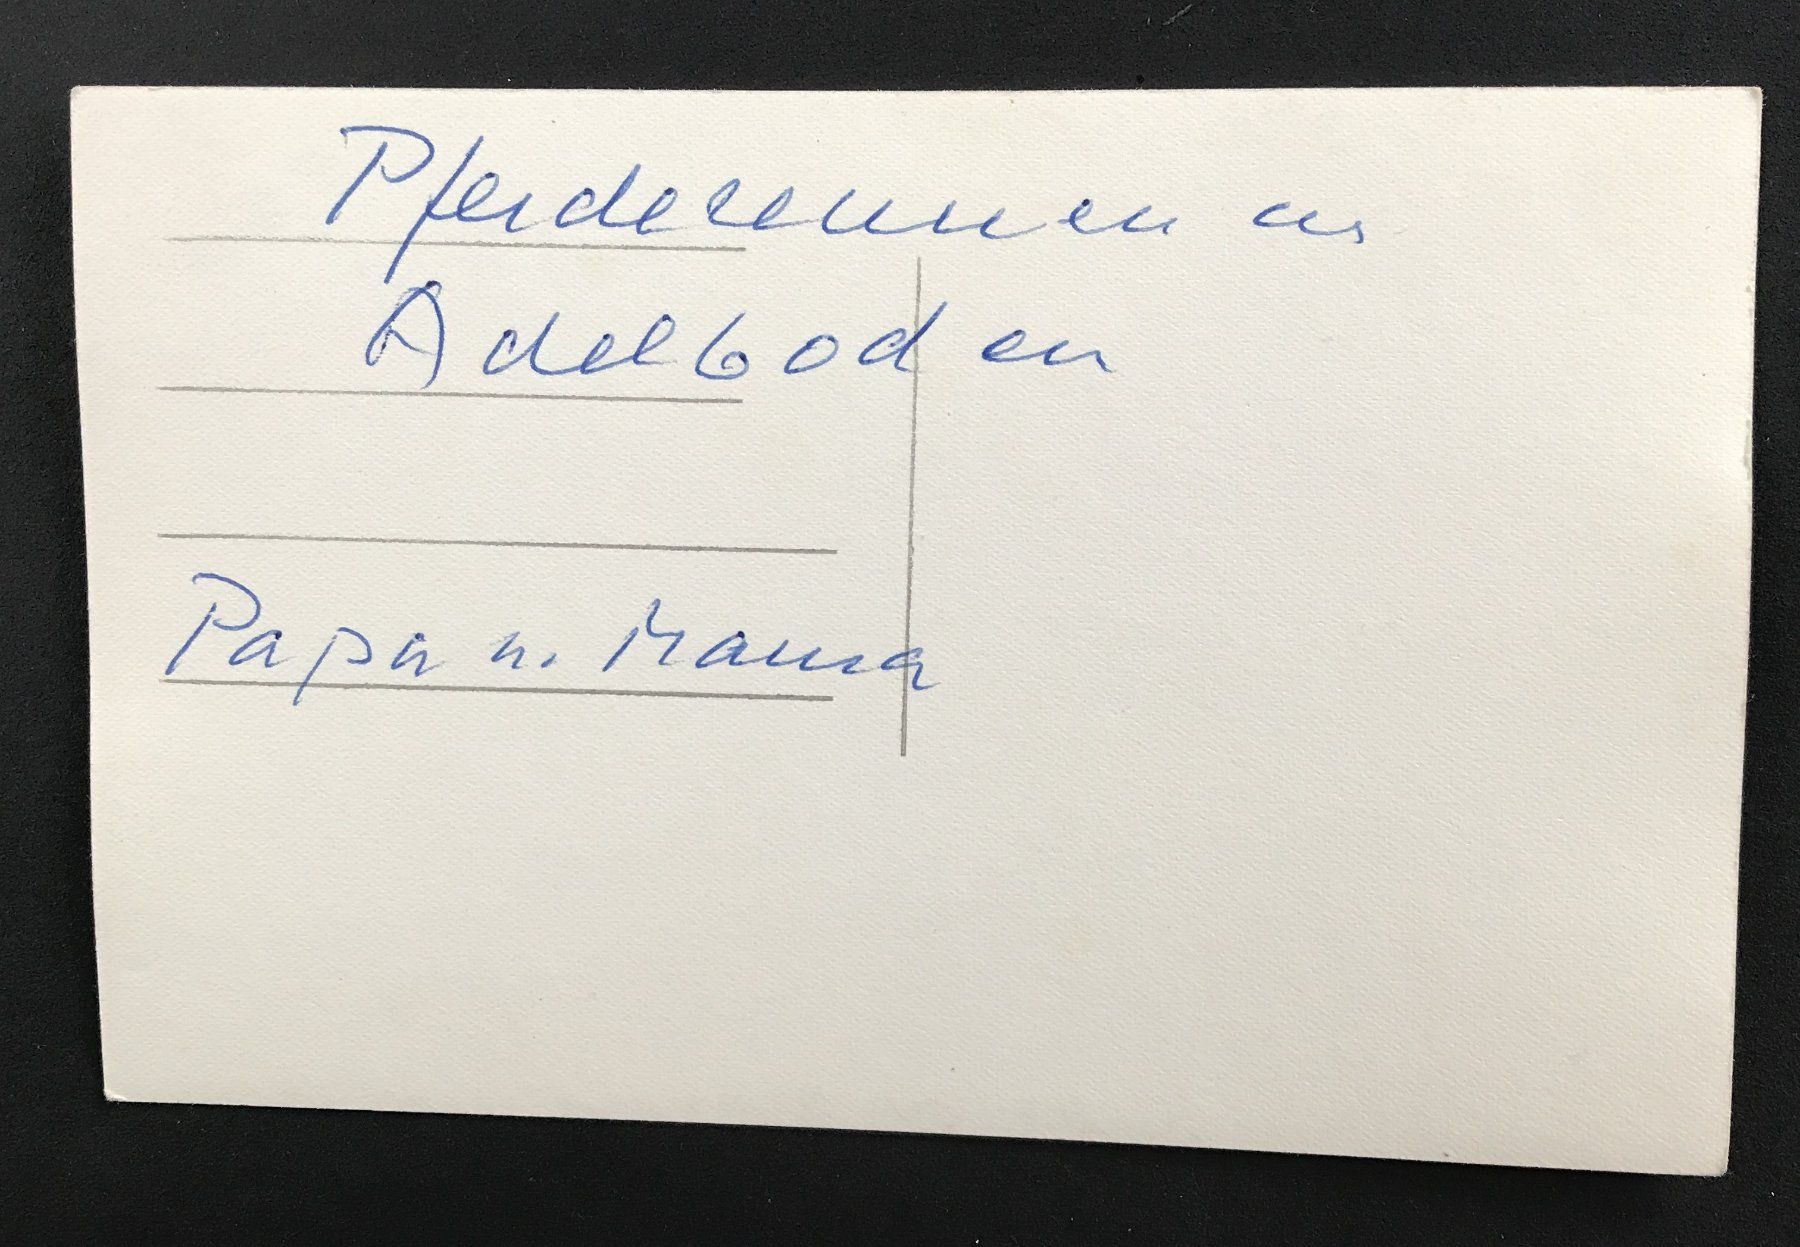 Pferderennen in
Adelboden
Papa u. Mama